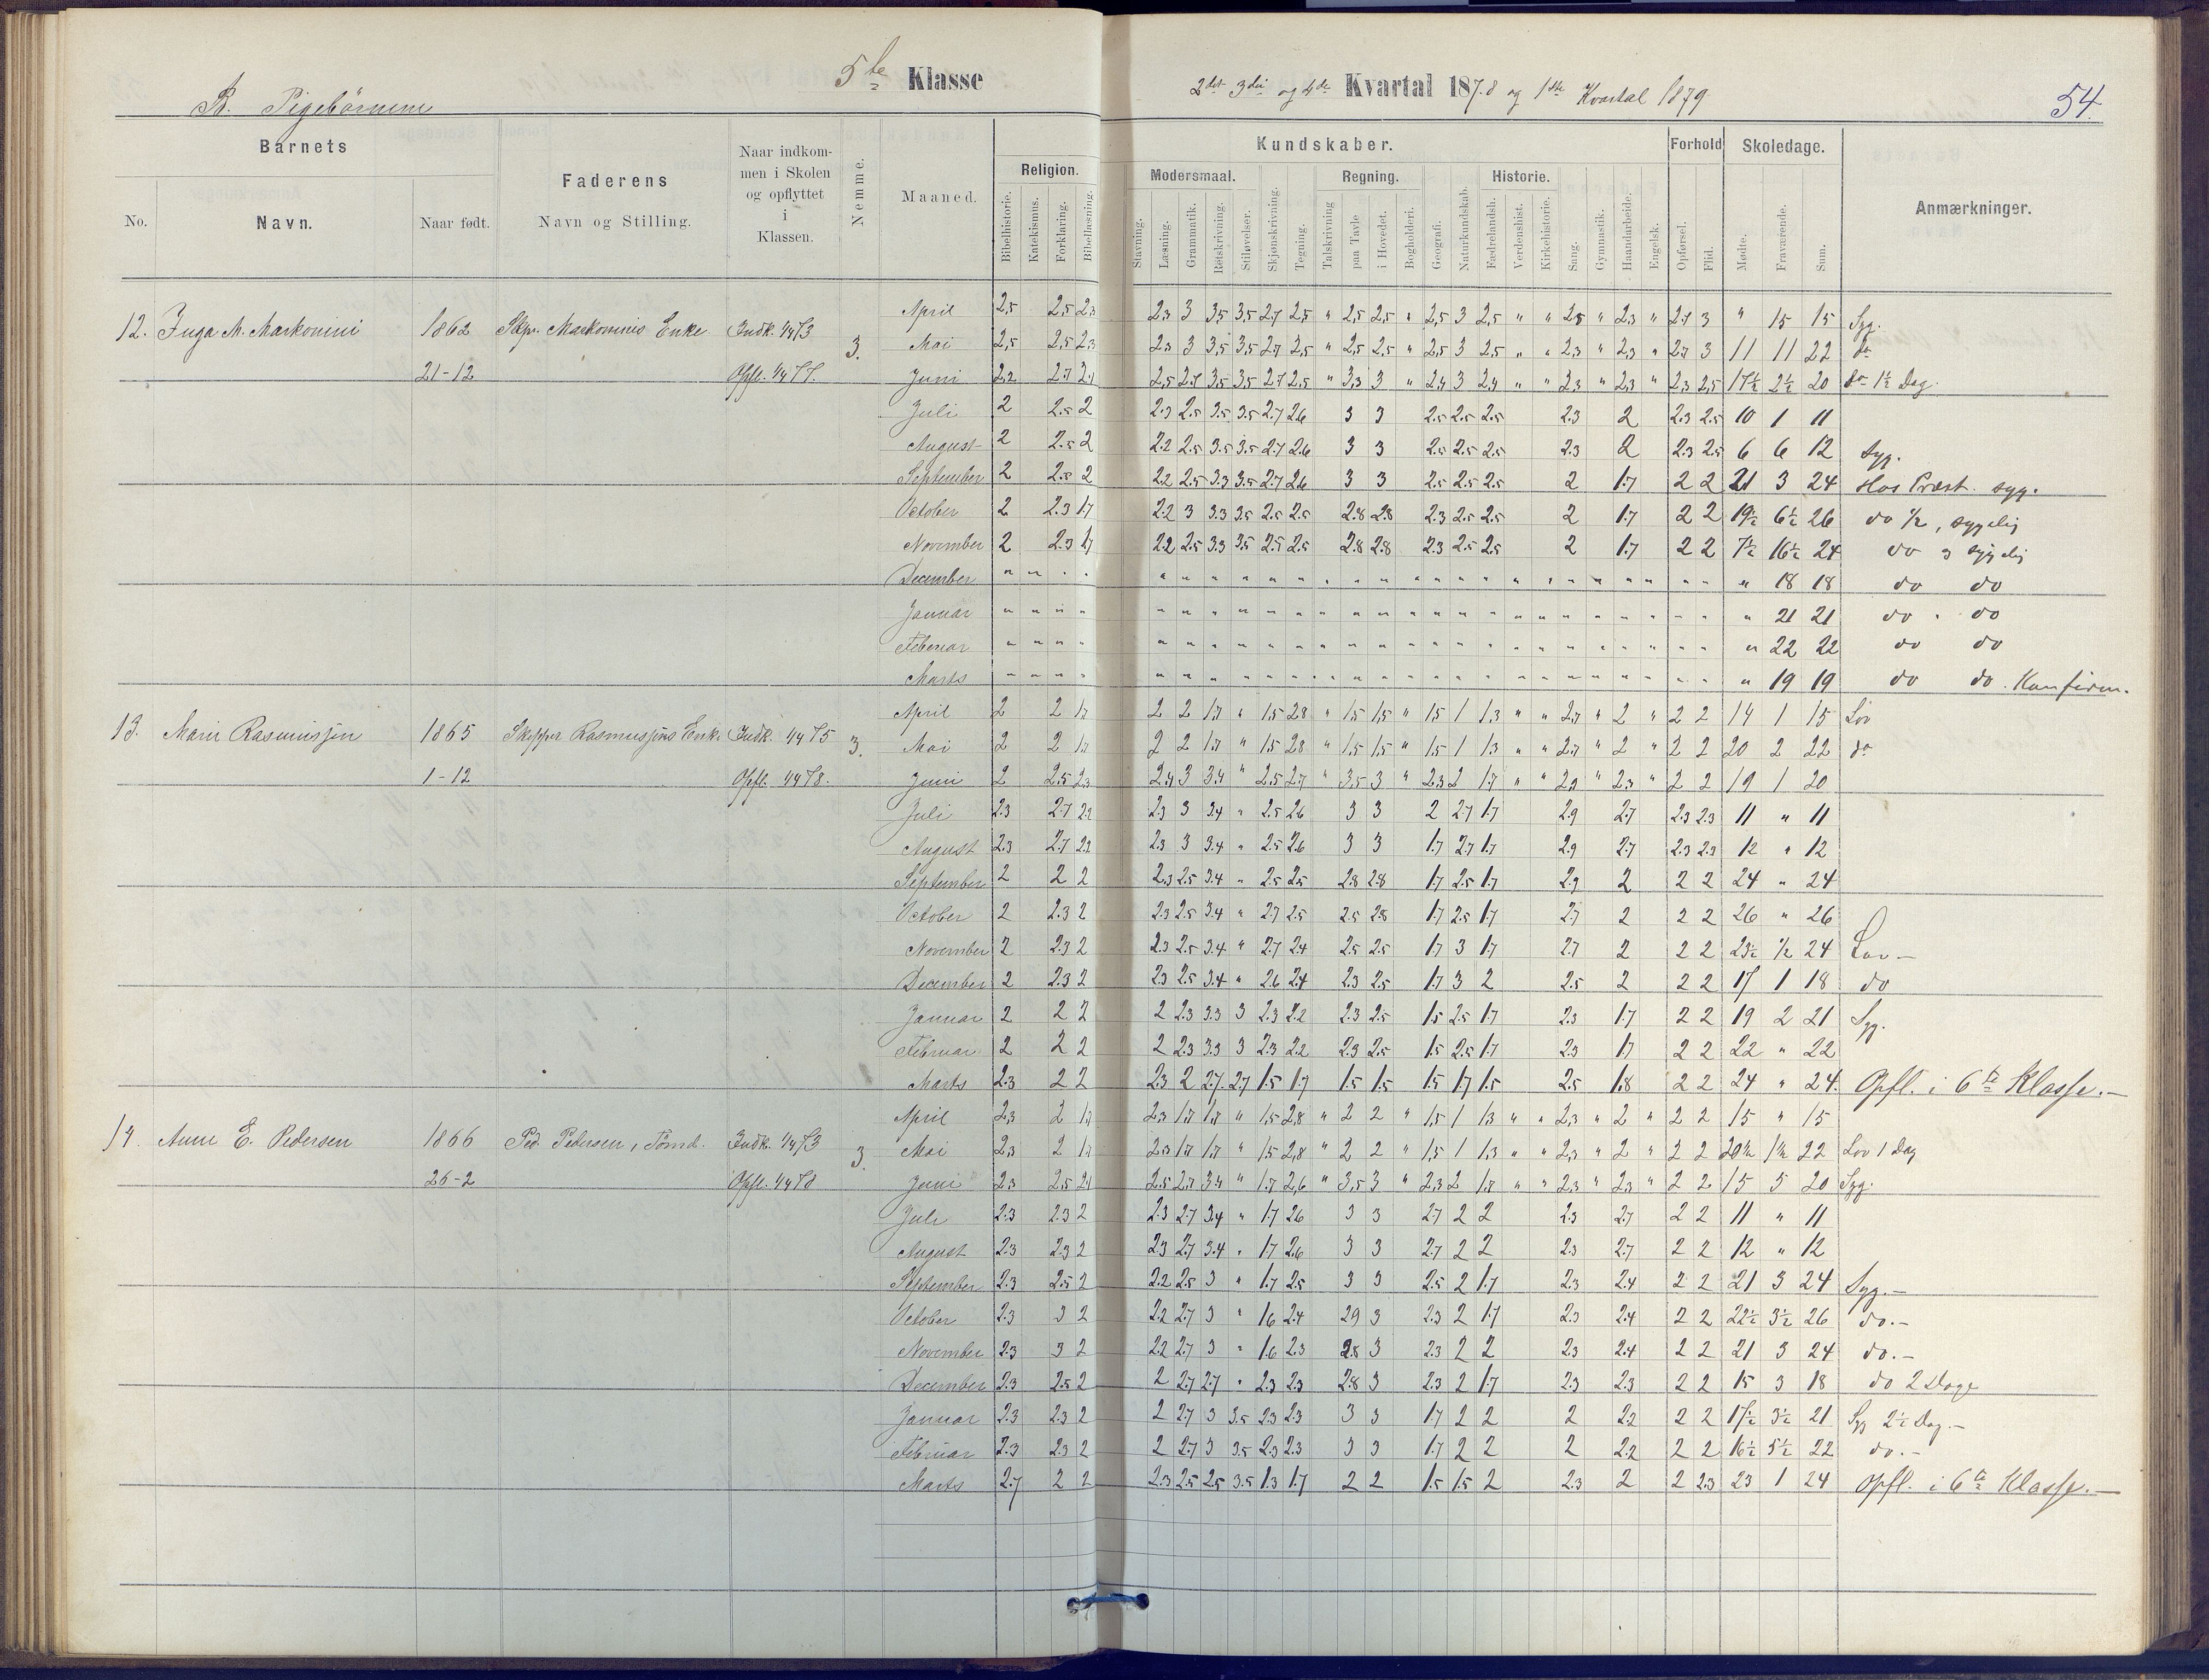 5te Klasse
B. Pigebörnene
2det 3die og 4de Kvartal 1878 og 1ste Kvartal 1879
54.
Barnets
No.
Navn.
Naar født.
Faderens
Navn og Stilling.
Naar indkom-
men i Skolen
og opflyttet
i
Klassen.
Nemme.
Maaned.
Kundskaber.
Religion.
Bibelhistorie.
Katekismus.
Forklaring.
Bibellæsning.
Modersmaal.
Stavning.
Læsning.
Grammatik.
Retskrivning.
Stiløvelser.
Skjønskrivning.
Tegning.
Regning.
Talskrivning
paa Tavle
i Hovedet.
Bogholderi.
Geografi.
Naturkundskab.
Historie.
Fædrelandsh.
Verdenshist.
Kirkehistorie.
Sang.
Gymnastik.
Haandarbeide.
Engelsk.
Forhold
Opførsel.
Flid.
Skoledage.
Mødte.
Fraværende.
Sum.
Anmærkninger.
12. Inga M. Markonini 1862 Skpr. Markoninis Enke Indk. 1/4 73 3.
21-12 Opfl. 1/4 77.
April 2,5 2,5 2,3 2,3 3 3,5 3,5 2,7 2,5 " 2,5 2,5 " 2,5 3 2,5 " " 2,8 " 2,3 " 2,7 3 " 15 15 Syg.
Mai 2,5 2,5 2,3 2,3 3 3,5 3,5 2,7 2,5 " 2,5 2,5 " 2,5 3 2,5 " " 2,3 " 2,3 " 2,7 3 11 11 22 do
Juni 2,2 2,7 2,1 2,5 2,7 3,5 3,5 2,7 2,5 " 3,3 3 " 2,4 3 2,4 " " 2,3 " 2,3 " 2,3 2,5 17½ 2½ 20 do 1½ Dag.
Juli 2 2.5 2 2.3 2.5 3.5 3.5 2.7 2.6 3 3 2.5 2.5 2.5 2.3 2 2.3 2.5 10 1 11
August 2 2.5 2 2.2 2.5 3.5 3.5 2.7 2.6 3 3 2.5 2.5 2.5 2.3 2 2.3 2.5 6 6 12 Syg.
September 2 2.5 2 2.2 2.5 3.3 3.5 2.7 2.6 3 3 2.5 2.5 2.5 2 1.7 2 2 21 3 24 Hos Præst. syg.
October 2 2.3 1.7 2.2 3 3.3 3.5 2.5 2.5 2.8 2.8 2.3 2.5 2.5 2 1.7 2 2 19½ 6½ 26 do ½, sygelig
November 2 2.3 1.7 2.2 2.5 3.3 3.5 2.5 2.5 2.8 2.8 2.3 2.5 2.5 2 1.7 2 2 7½ 16½ 24 do 3 sygelig
December " " " " " " " " " " " " " " " " " " " " " " " " " " 18 18 do do
Januar " " " " " " " " " " " " " " " " " " " " " " " " " " 21 21 do " do
Februar " " " " " " " " " " " " " " " " " " " " " " " " " " 22 22 do do
Marts " " " " " " " " " " " " " " " " " " " " " " " " " " 19 19 do do. Konfirm.
13. Marie Rasmussen 1865 Skipper Rasmussens Enke Indk. 1/4 75 3.
1-12 Opfl. 1/4 78.
April 2 2 1,7 2 2 1,7 " 1,5 2,8 " 1,5 1,5 " 1,5 1 1,3 " " 2,7 " 2 " 2 2 14 1 15 Lov
Mai 2 2 1,7 2 2 1,7 " 1,5 2,8 " 1,5 1,5 " 1,5 1 1,3 " " 2,7 " 2 " 2 2 20 2 22 do
Juni 2 2,5 2,3 2,4 3 3,4 " 2,5 2,7 " 3,5 3 " 2,3 2 1,7 " " 2,9 " 2,3 " 2 2 19 1 20
Juli 2.3 2.7 2.2 2.3 3 3.4 " 2.5 2.6 3 3 2 2.7 1.7 2.9 2.7 2.3 2.3 11 " 11
August 2.3 2.7 2.2 2.3 3 3.4 " 2.5 2.6 3 3 1.7 2.7 1.7 2.9 2.7 2.3 2.3 12 " 12
September 2 2 2 2.3 2.5 3.4 " 2.5 2.5 2.8 2.8 1.7 2.5 1.7 2.9 2 2 2 24 " 24
October 2 2.3 2 2.3 2.5 3.4 " 2.7 2.5 2.5 2.8 1.7 2.5 1.7 2.7 2 2 2 26 " 26
November 2 2.3 2 2.3 2.5 3.4 " 2.7 2.4 2.5 2.5 1.7 3 1.7 2.7 2 2 2 23½ ½ 24 Lov -
December 2 2.3 2 2.3 2.5 3.4 " 2.6 2.4 2.3 2.5 1.7 3 2 2.5 2 2 2 17 1 18 do
Januar 2 2 2 2 2.3 3.3 3 2.3 2.2 2.3 2.5 1.5 2.5 1.7 2.3 1.7 2 2 19 2 21 Syg.
Februar 2 2 2 2 2.3 3.3 3 2.3 2.2 2.3 2.5 1.5 2.5 1.7 2.3 1.7 2 2 22 " 22
Marts 2.3 2 2 2.3 2 2.7 2.7 1.5 1.7 1.5 1.5 1.5 1.7 1.5 2.5 1.8 2 2 24 " 24. Opfl. i 6te Klasse. -
14. Anne E. Pedersen 1866 Ped. Pedersen, Tømd. Indk. 1/4 73 3.
26-2 Opfl. 1/4 78
April 2,3 2 1,7 2,3 1,7 1,7 " 1,5 2,8 " 2 2 " 1,5 1 1,3 " " 2,3 " 2 " 2 2 15 " 15
Mai 2,3 2 1,7 2,3 1,7 1,7 " 1,5 2,8 " 2 2 " 1,5 1 1,3 " " 2,3 " 2 " 2 2 20½ 1½ 22 Lov 1 Dag
Juni 2,3 2,5 2,1 2,5 2,7 3,4 " 1,7 2,6 " 3,5 3 " 2,3 2 1,7 " " 2,3 " 2,3 " 2 2 15 5 20 Syg.
Juli 2.3 2.3 2 2.3 2.7 3.4 " 1.7 2.6 3 3 2.7 2 2 2.3 2.7 2 2 11 " 11
August 2.3 2.3 2 2.3 2.7 3.4 " 1.7 2.6 3 3 2.7 2 2 2.3 2.7 2 2 12 " 12
September 2.3 2.5 2 2.2 2.5 3 " 1.7 2.5 3 3 2.5 2 1.7 2.3 2.4 2 2 21 3 24 Syg. -
October 2.3 3 2 2.2 2.7 3 " 1.6 2.4 2.9 3 2.3 2 1.7 2.3 2.4 2 2 22½ 3½ 26 do. -
November 2.3 3 2 2.2 2.7 3 " 1.6 2.3 2.8 3 2.3 2 2 2.3 2.4 2 2 21 3 24 do. -
December 2.3 2.5 2 2 2.7 2.7 " 2.3 2.3 2.8 3 2.3 2 1.7 2.3 2.3 2 2 15 3 18 do 2 Dage
Januar 2.3 2.3 2 2 2.7 3 3.5 2.3 2.3 3 3 1.7 2 2 2 2.2 2 2 17½ 3½ 21 Syg 2½ Dag. -
Februar 2.3 2.3 2 2 2.7 3 3.5 2.3 2.3 3 3 1.7 2 2 2 2.2 2 2 16½ 5½ 22 do. -
Marts 2.7 2 2 2.3 2.5 2.5 3.5 1.3 1.7 2 2 1.5 1.5 2 2.3 2 2 2.3 23 1 24 Opfl. i 6te Klasse. -